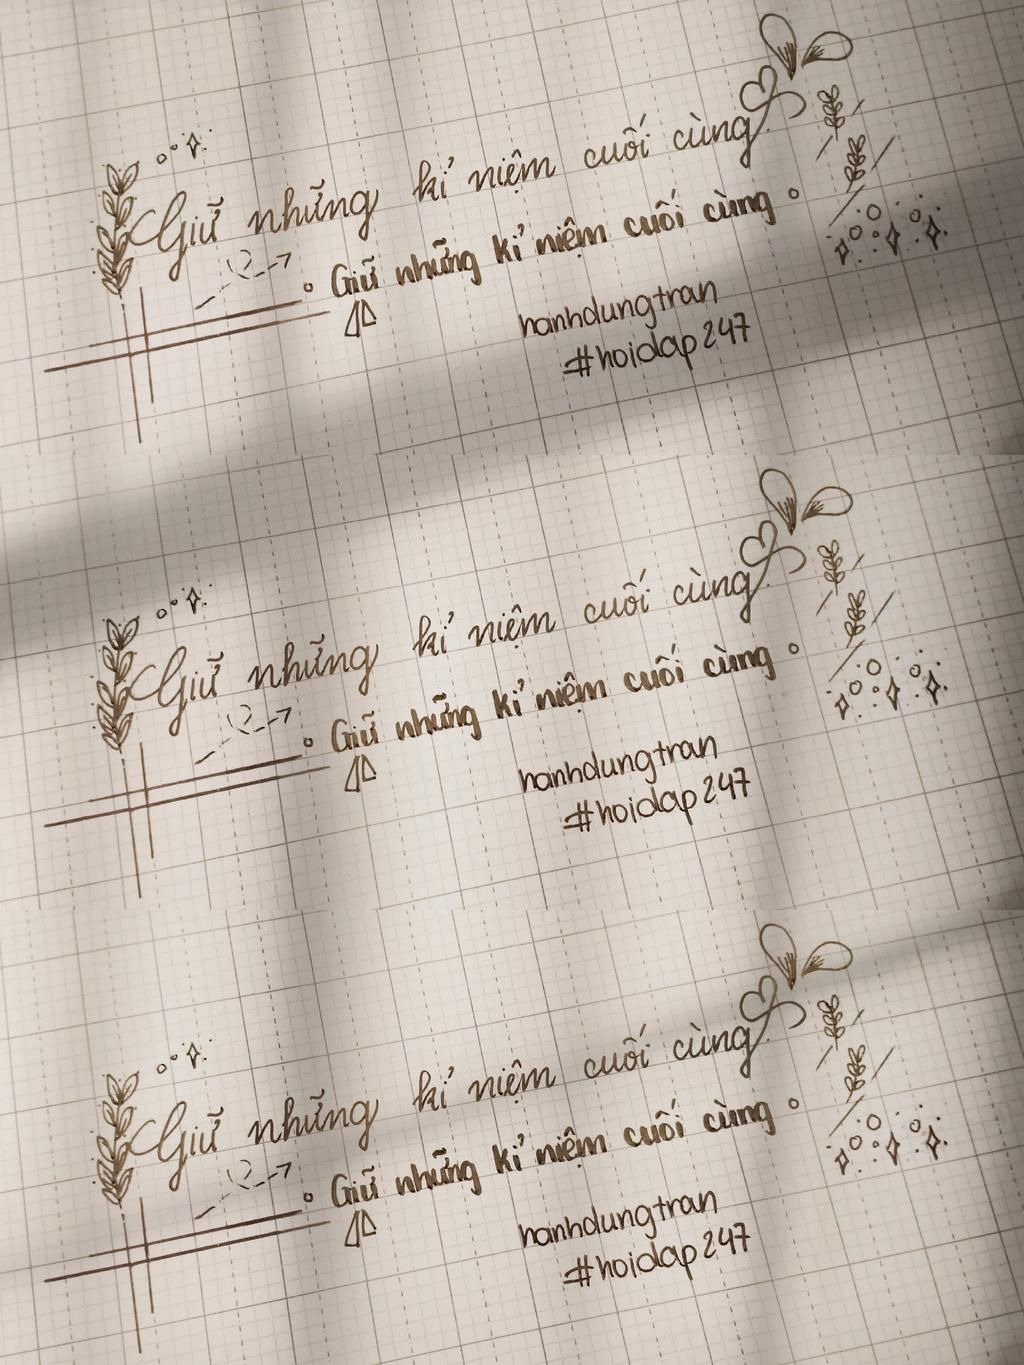 Giữ những kỉ niệm cuối cùng
Giữ những kỉ niệm cuối cùng
hanhdungtran
#hoidap247
Giữ những kỉ niệm cuối cùng
Giữ những kỉ niệm cuối cùng
hanhdungtran
#hoidap247
Giữ những kỉ niệm cuối cùng
Giữ những kỉ niệm cuối cùng
hanhdungtran
#hoidap247